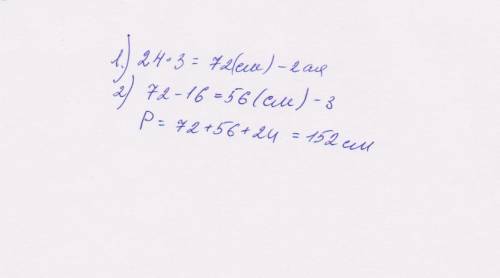 1.) 24·3 = 72(см) - 2ая
2) 72-16=56(см) - 3
P = 72+56+24 = 152 см